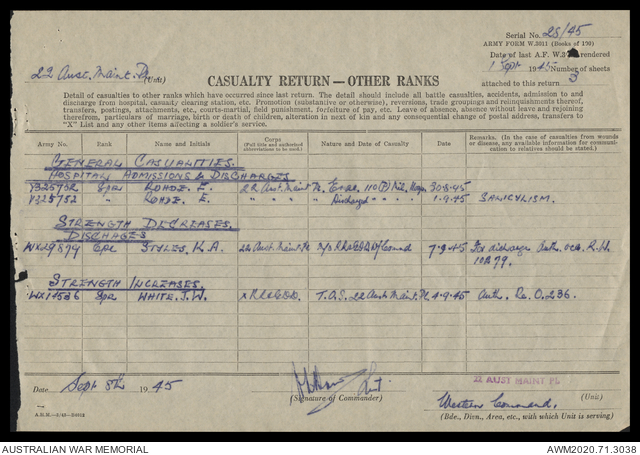 Serial No. 25/45
ARMY FORM W.3011 (Books of 100)
Date of last A.F. W.3 rendered
22 Aust. Maint. Pl (Unit)
1 Sept 1945 Number of sheets
attached to this return 3
CASUALTY RETURN—OTHER RANKS
Detail of casualties to other ranks which have occurred since last return. The detail should include all battle casualties, accidents, admission to and
discharge from hospital, casualty clearing station, etc. Promotion (substantive or otherwise), reversions, trade groupings and relinquishments thereof,
transfers, postings, attachments, etc., courts-martial, field punishment, forfeiture of pay, etc. Leave of absence, absence without leave and rejoining
therefrom, particulars of marriage, birth or death of children, alteration in next of kin and any consequential change of postal address, transfers to
"X" List and any other items affecting a soldier's service.
Army No. Rank Name and Initials Corps (Full title and authorized abbreviations to be used.) Nature and Date of Casualty Remarks. (In the case of casualties from wounds or disease, any available information for communication to relatives should be stated.)
GENERAL CASUALTIES.
HOSPITAL ADMISSIONS & DISCHARGES
Spr ROHDE. E. 22 Aust. Maint Pl. Evac. 110 (P) Mil. Hosp 30-8-45
V325752 " ROHDE. E. " " " Discharged " " " 1.9.45 SALICYLISM.
STRENGTH DECREASES.
DISCHAGES
WX29879 Cpl STYLES, K.A. 22 Aust. Maint. Pl 7-9-45 For discharge Auth.
STRENGTH INCREASES.
WX14536 Spr WHITE, J.W. T.O.S. 22 Aust. Maint. Pl. 4-9-45 Auth. Ro. O.236.
Date Sept 8th 1945
Lieut.
(Signature of Commander)
22 AUST MAINT PL
(Unit)
Western Command.
(Bde., Divn., Area, etc., with which Unit is serving)
AUSTRALIAN WAR MEMORIAL
AWM2020.71.3038